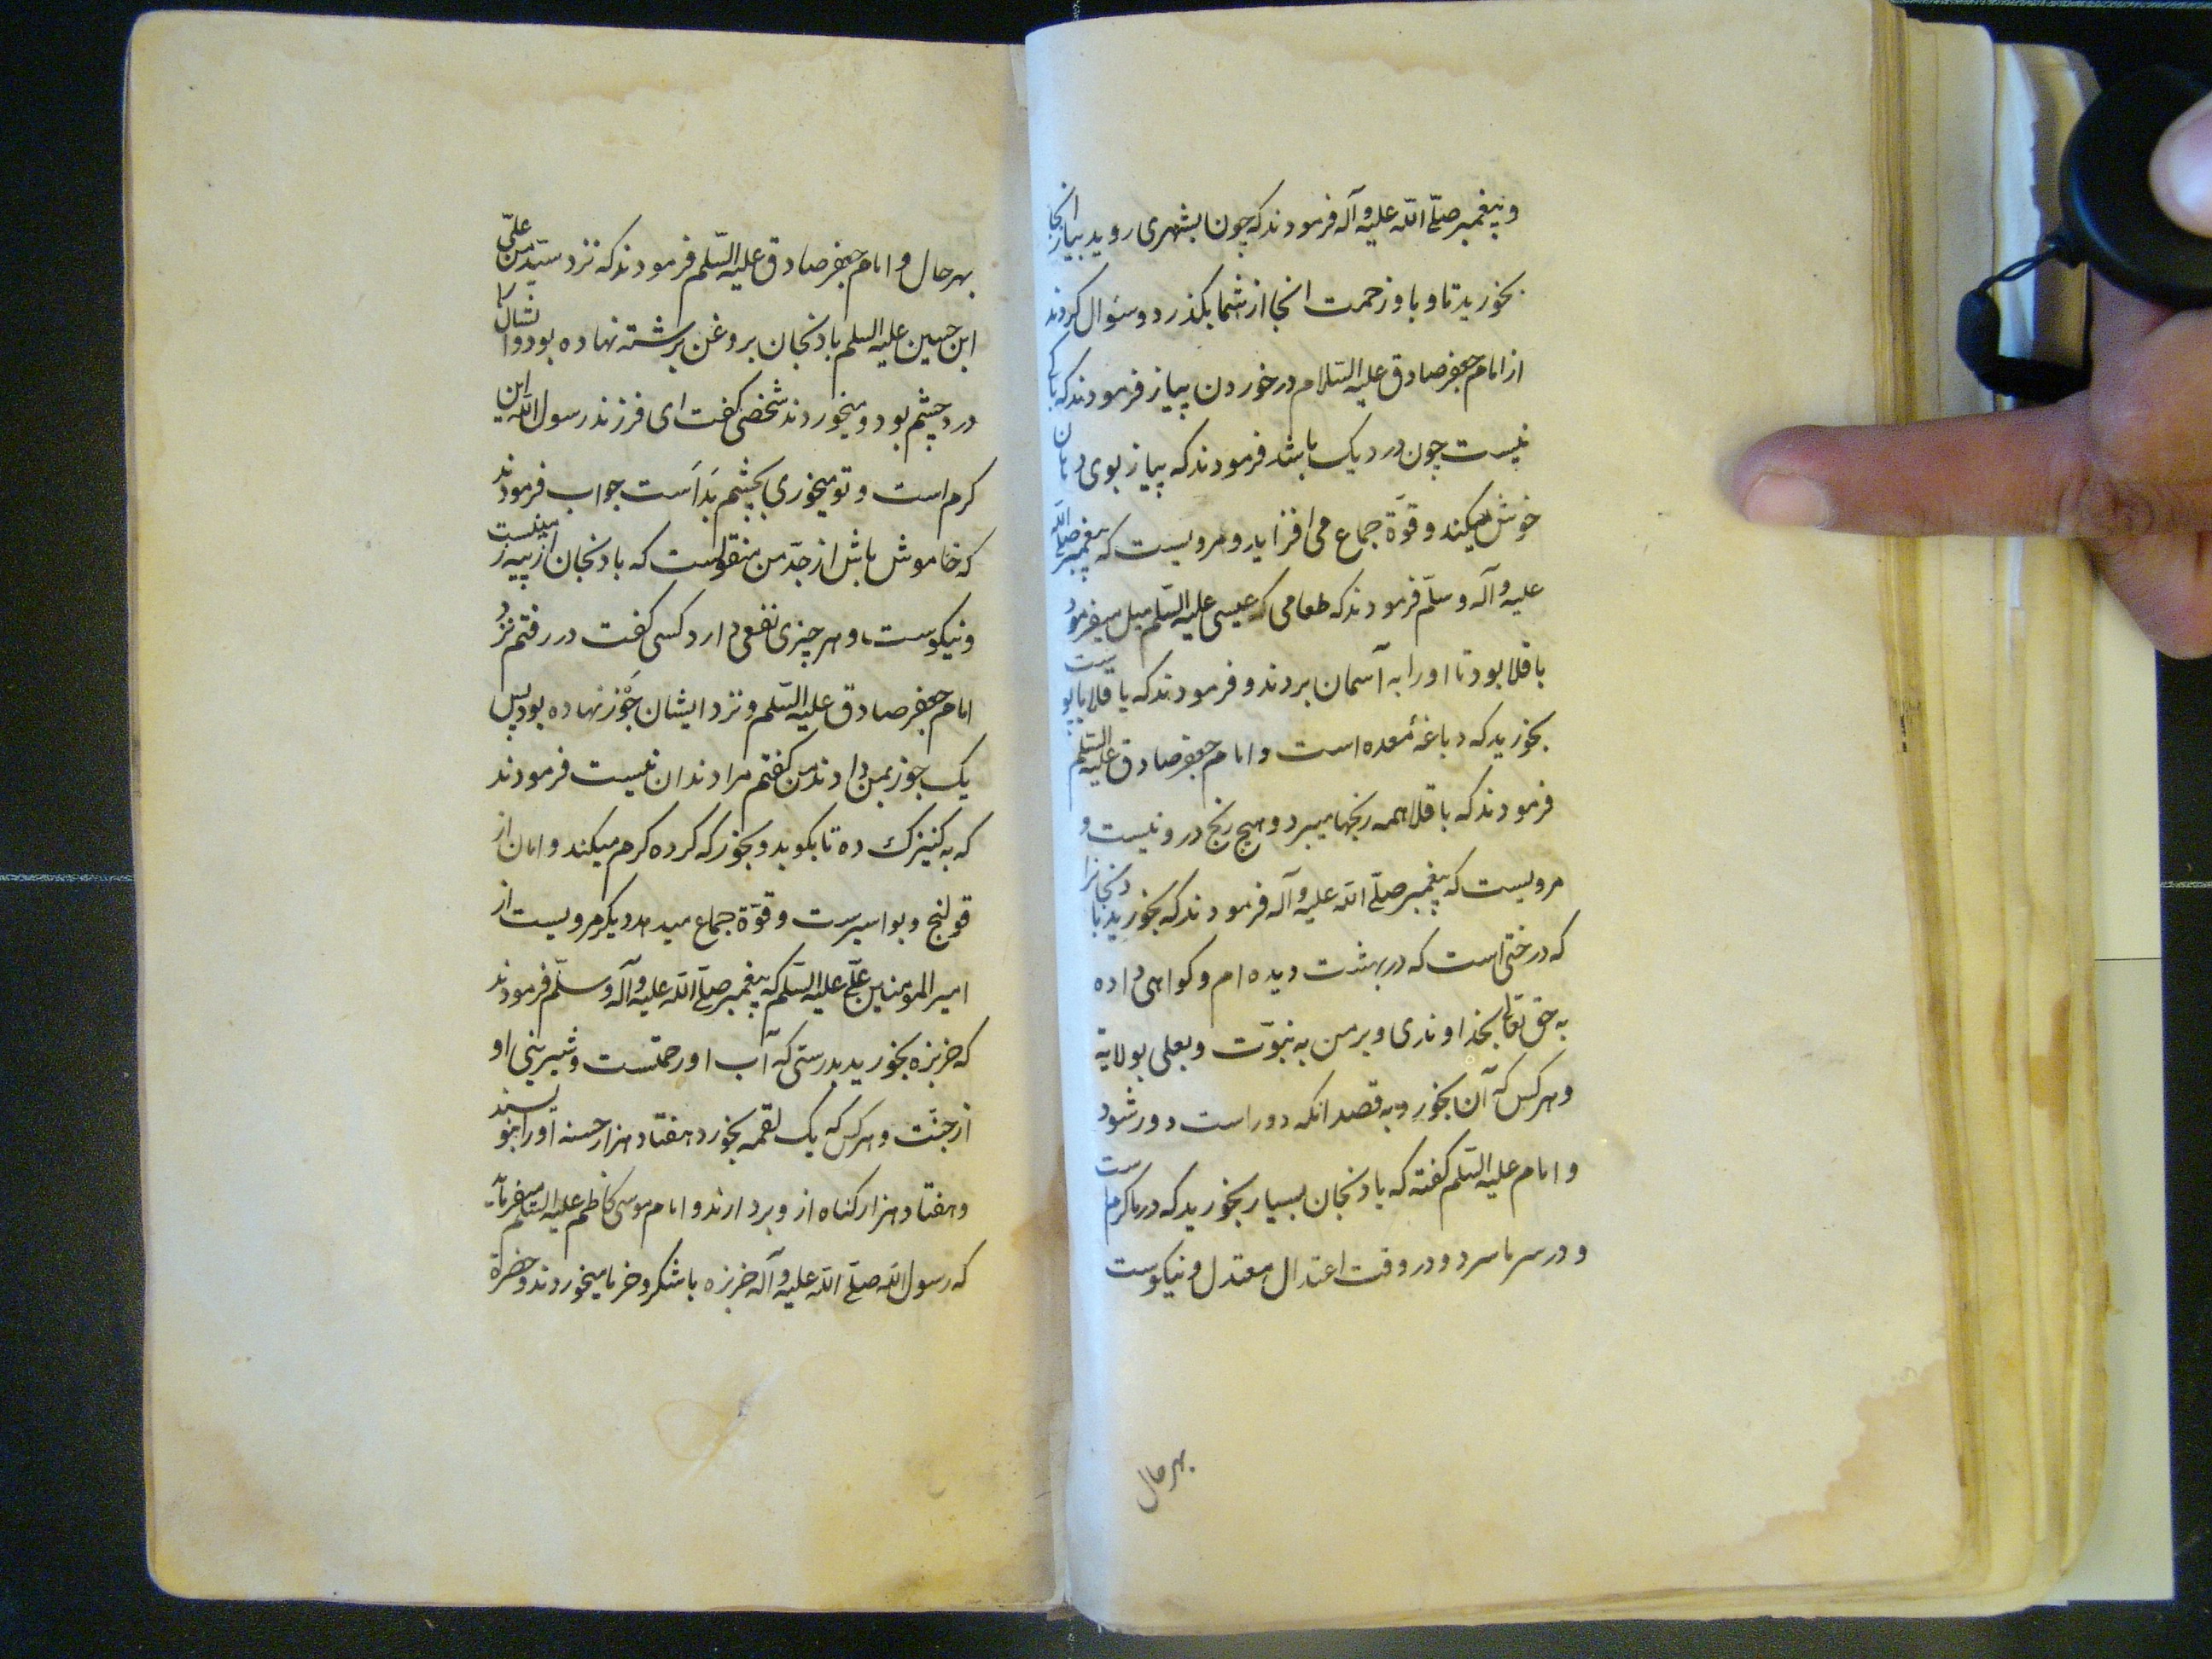 و پیغمبر صلّے اللّه علیه و آله فرمودند که چون بشهری روید پیاز انجا
بخورید تا وبا و زحمت انجا از شما بگذرد و سؤال کردند
از امام جعفر صادق علیه السّلام در خوردن پیاز فرمودند که باکی
نیست چون در دیک باشد فرمودند که پیاز بوی دهان
خوش میکند و قوّة جماع می افزاید و مرویست که پیغمبر صلّے اللّه
علیه و آله و سلّم فرمودند که طعامی که عیسی علیه السّلم میل میفرمود
باقلا بود تا او را به آسمان بردند و فرمودند که باقلا با پوست
بخورید که دباغهٔ معده است و امام جعفر صادق علیه السّلم
فرمودند که باقلا همه رنجها میبرد و هیچ رنج درو نیست و
مرویست که پیغمبر صلّے اللّه علیه و آله فرمودند که بخورید بادنجانرا
که درختی است که در بهشت دیده ام و کواهی داده
به حق تعالے بخداوندی و بر من به نبوّت و بعلی بولایة
و هر کس که آن بخورد به قصد انکه دوراست دور شود
و امام علیه السّلم کفته که بادنجان بسیار بخورید که در کرما کرمست
و در سرما سرد و در وقت اعتدال معتدل و نیکوست
بهر حال
بهر حال و امام جعفر صادق علیه السّلم فرمودند که نزد سیّد من علیّ
ابن حسین علیه السلم بادنجان بروغن برشته نهاده بود و ایشانرا
درد چشم بود و میخوردند شخصی کفت ای فرزند رسول اللّه این
کرم است و تو میخوری بچشم بَد اَست جواب فرمودند
که خاموش باش از جدّ من منقولست که بادنجان از پیه زمینست
و نیکوست، و هر چیزی نفعی دارد کسی کفت در رفتم نزد
امام جعفر صادق علیه السّلم و نزد ایشان جَوْز نهاده بود پس
یک جوز بمن دادند من کفتم مرا دندان نیست فرمودند
که به کنیزک ده تا بکوبد و بخور که کرده کرم میکند و امان از
قولنج و بواسیرست و قوّة جماع میدهد دیکر مرویست از
امیر المومنین علے علیه السّلم که پیغمبر صلّے اللّه علیه و آله و سلّم فرمودند
که خربزه بخورید بدرستی که آب او رحمتست و شیرینی او
از جنّت و هر کس که یک لقمه بخورد هفتاد هزار حسنه او را بنویسند
و هفتاد هزار کناه از و بردارند و امام موسی کاظم علیه السّلم میفرماید
که رسول اللّه صلّے اللّه علیه و آله خربزه با شکر و خرما میخوردند و حضرة